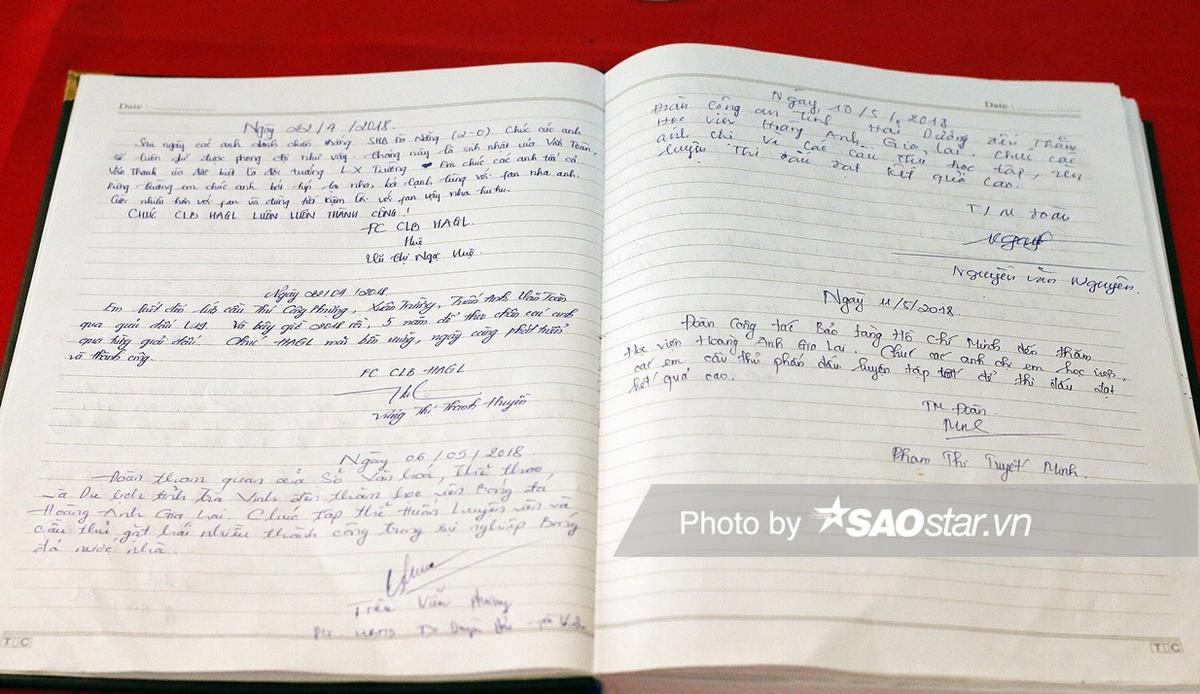 Date :
Ngày 22/4/2018.
Sau ngày các anh đánh chiến thắng SHB Đà Nẵng (2-0). Chúc các anh
sẽ luôn giữ được phong độ như vậy. Tháng này là sinh nhật của Văn Toàn,
Văn Thanh và đặc biệt là đội trưởng L.X Trường. Em chúc các anh tất cả
em chúc anh nha, bớt lạnh lùng với fan nha anh.
Cười nhiều hơn với fan và đừng với fan vậy nha hu hu.
CHÚC CLB HAGL LUÔN LUÔN THÀNH CÔNG !
FC CLB HAGL.
Huệ
Thị Ngọc Huệ.
Ngày 22/04/2018.
Em biết đến cầu thủ Công Phượng, Xuân Trường, Tuấn Anh, Văn Toàn
qua giải đấu U19. Và bây giờ 2018 rồi, 5 năm để theo chân các anh
qua từng giải đấu. Chúc HAGL mãi bền vững, ngày càng phát triển
và thành công.
FC CLB-HAGL
Thị Thanh Huyền
Ngày 06/05/2018
Đoàn tham quan của Sở Văn hoá, Thể thao
và Du lịch tỉnh Trà Vinh đến thăm học viện Bóng đá
Hoàng Anh Gia Lai. Chúc tập thể Huấn Luyện viên và
cầu thủ gặt hái nhiều thành công trong sự nghiệp Bóng
đá nước nhà.
Trần Văn
TUC
Date :
Ngày 10/5/2018
Đoàn Công an Tỉnh Hải Dương đến Thăm
Học Viện Hoàng Anh Gia Lai. Chúc các
anh chị và các cầu thủ học tập, rèn
luyện Thi đấu đạt kết quả cao.
T/M Đoàn
Nguyễn Văn Nguyên.
Ngày 11/5/2018.
Đoàn Công tác Bảo tàng Hồ Chí Minh đến thăm
Học viện Hoàng Anh Gia Lai. Chúc các anh chị em học viên,
các em cầu thủ phấn đấu luyện tập tốt để thi đấu đạt
kết quả cao.
TM Đoàn.
Phạm Thị Tuyết Minh.
Photo by SAOstar.vn
TUC